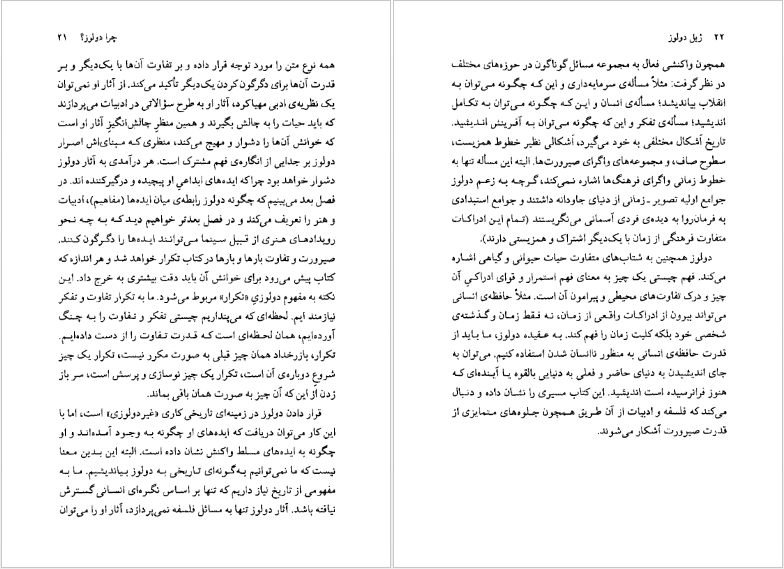 چرا دولوز؟ ۲۱
همه نوع متن را مورد توجه قرار داده و بر تفاوت آن‌ها با یک‌دیگر و بر
قدرت آن‌ها برای دگرگون کردن یک‌دیگر تأکید می‌کند. از آثار او نمی‌توان
یک نظریه‌ی ادبی مهیا کرد، آثار او به طرح سؤالاتی در ادبیات می‌پردازند
که باید حیات را به چالش بگیرند و همین منظر چالش‌انگیز آثار او است
که خوانش آن‌ها را دشوار و مهیج می‌کند، منظری که مبنای‌اش اصرار
دولوز بر جدایی از انگاره‌ی فهم مشترک است. هر درآمدی به آثار دولوز
دشوار خواهد بود چرا که ایده‌های ابداعی او پیچیده و درگیرکننده اند. در
فصل بعد می‌بینیم که چگونه دولوز رابطه‌ی میان ایده‌ها (مفاهیم)، ادبیات
و هنر را تعریف می‌کند و در فصل بعدتر خواهیم دید که به چه نحو
رویدادهای هنری از قبیل سینما می‌توانند ایده‌ها را دگرگون کنند.
صیرورت و تفاوت بارها و بارها در کتاب تکرار خواهد شد و هر اندازه که
کتاب پیش می‌رود برای خوانش آن باید دقت بیشتری به خرج داد. این
نکته به مفهوم دولوزیِ «تکرار» مربوط می‌شود. ما به تکرار تفاوت و تفکر
نیازمند ایم. لحظه‌ای که می‌پنداریم چیستی تفکر و تفاوت را به چنگ
آورده‌ایم، همان لحظه‌ای است که قدرت تفاوت را از دست داده‌ایم.
تکرار، بازرخداد همان چیز قبلی به صورت مکرر نیست، تکرار یک چیز
شروعِ دوباره‌ی آن است، تکرار یک چیز نوسازی و پرسش است، سر باز
زدن از این که آن چیز به صورت همان باقی بماند.
قرار دادن دولوز در زمینه‌ای تاریخی کاری «غیردولوزی» است، اما با
این کار می‌توان دریافت که ایده‌های او چگونه به وجود آمده‌اند و او
چگونه به ایده‌های مسلط واکنش نشان داده است. البته این بدین معنا
نیست که ما نمی‌توانیم به‌گونه‌ای تاریخی به دولوز بیاندیشیم. ما به
مفهومی از تاریخ نیاز داریم که تنها بر اساس نگره‌ای انسانی گسترش
نیافته باشد. آثار دولوز تنها به مسائل فلسفه نمی‌پردازد، آثار او را می‌توان
۲۲ ژیل دولوز
همچون واکنشی فعال به مجموعه مسائل گوناگون در حوزه‌های مختلف
در نظر گرفت: مثلاً مسأله‌ی سرمایه‌داری و این که چگونه می‌توان به
انقلاب بیاندیشد؛ مسأله‌ی انسان و این که چگونه می‌توان به تکامل
اندیشید؛ مسأله‌ی تفکر و این که چگونه می‌توان به آفرینش اندیشید.
تاریخ اَشکال مختلفی به خود می‌گیرد، اَشکالی نظیر خطوط همزیست،
سطوح صاف، و مجموعه‌های واگرای صیرورت‌ها. البته این مسأله تنها به
خطوط زمانی واگرای فرهنگ‌ها اشاره نمی‌کند، گرچه به زعم دولوز
جوامع اولیه تصویر ـ زمانی از دنیای جاودانه داشتند و جوامع استبدادی
به فرمان‌روا به دیده‌ی فردی آسمانی می‌نگریستند (تمام این ادراکات
متفاوت فرهنگی از زمان با یک‌دیگر اشتراک و همزیستی دارند).
دولوز همچنین به شتاب‌های متفاوت حیات حیوانی و گیاهی اشاره
می‌کند. فهم چیستی یک چیز به معنای فهم استمرار و قوای ادراکیِ آن
چیز و درک تفاوت‌های محیطی و پیرامون آن است. مثلاً حافظه‌ی انسانی
می‌تواند بیرون از ادراکات واقعی از زمان، نه فقط زمان و گذشته‌ی
شخصی خود بلکه کلیت زمان را فهم کند. به عقیده دولوز، ما باید از
قدرت حافظه‌ی انسانی به منظور ناانسان شدن استفاده کنیم. می‌توان به
جای اندیشیدن به دنیای حاضر و فعلی به دنیایی بالقوه یا آینده‌ای که
هنوز فرانرسیده است اندیشید. این کتاب مسیری را نشان داده و دنبال
می‌کند که فلسفه و ادبیات از آن طریق همچون جلوه‌های متمایزی از
قدرت صیرورت آشکار می‌شوند.